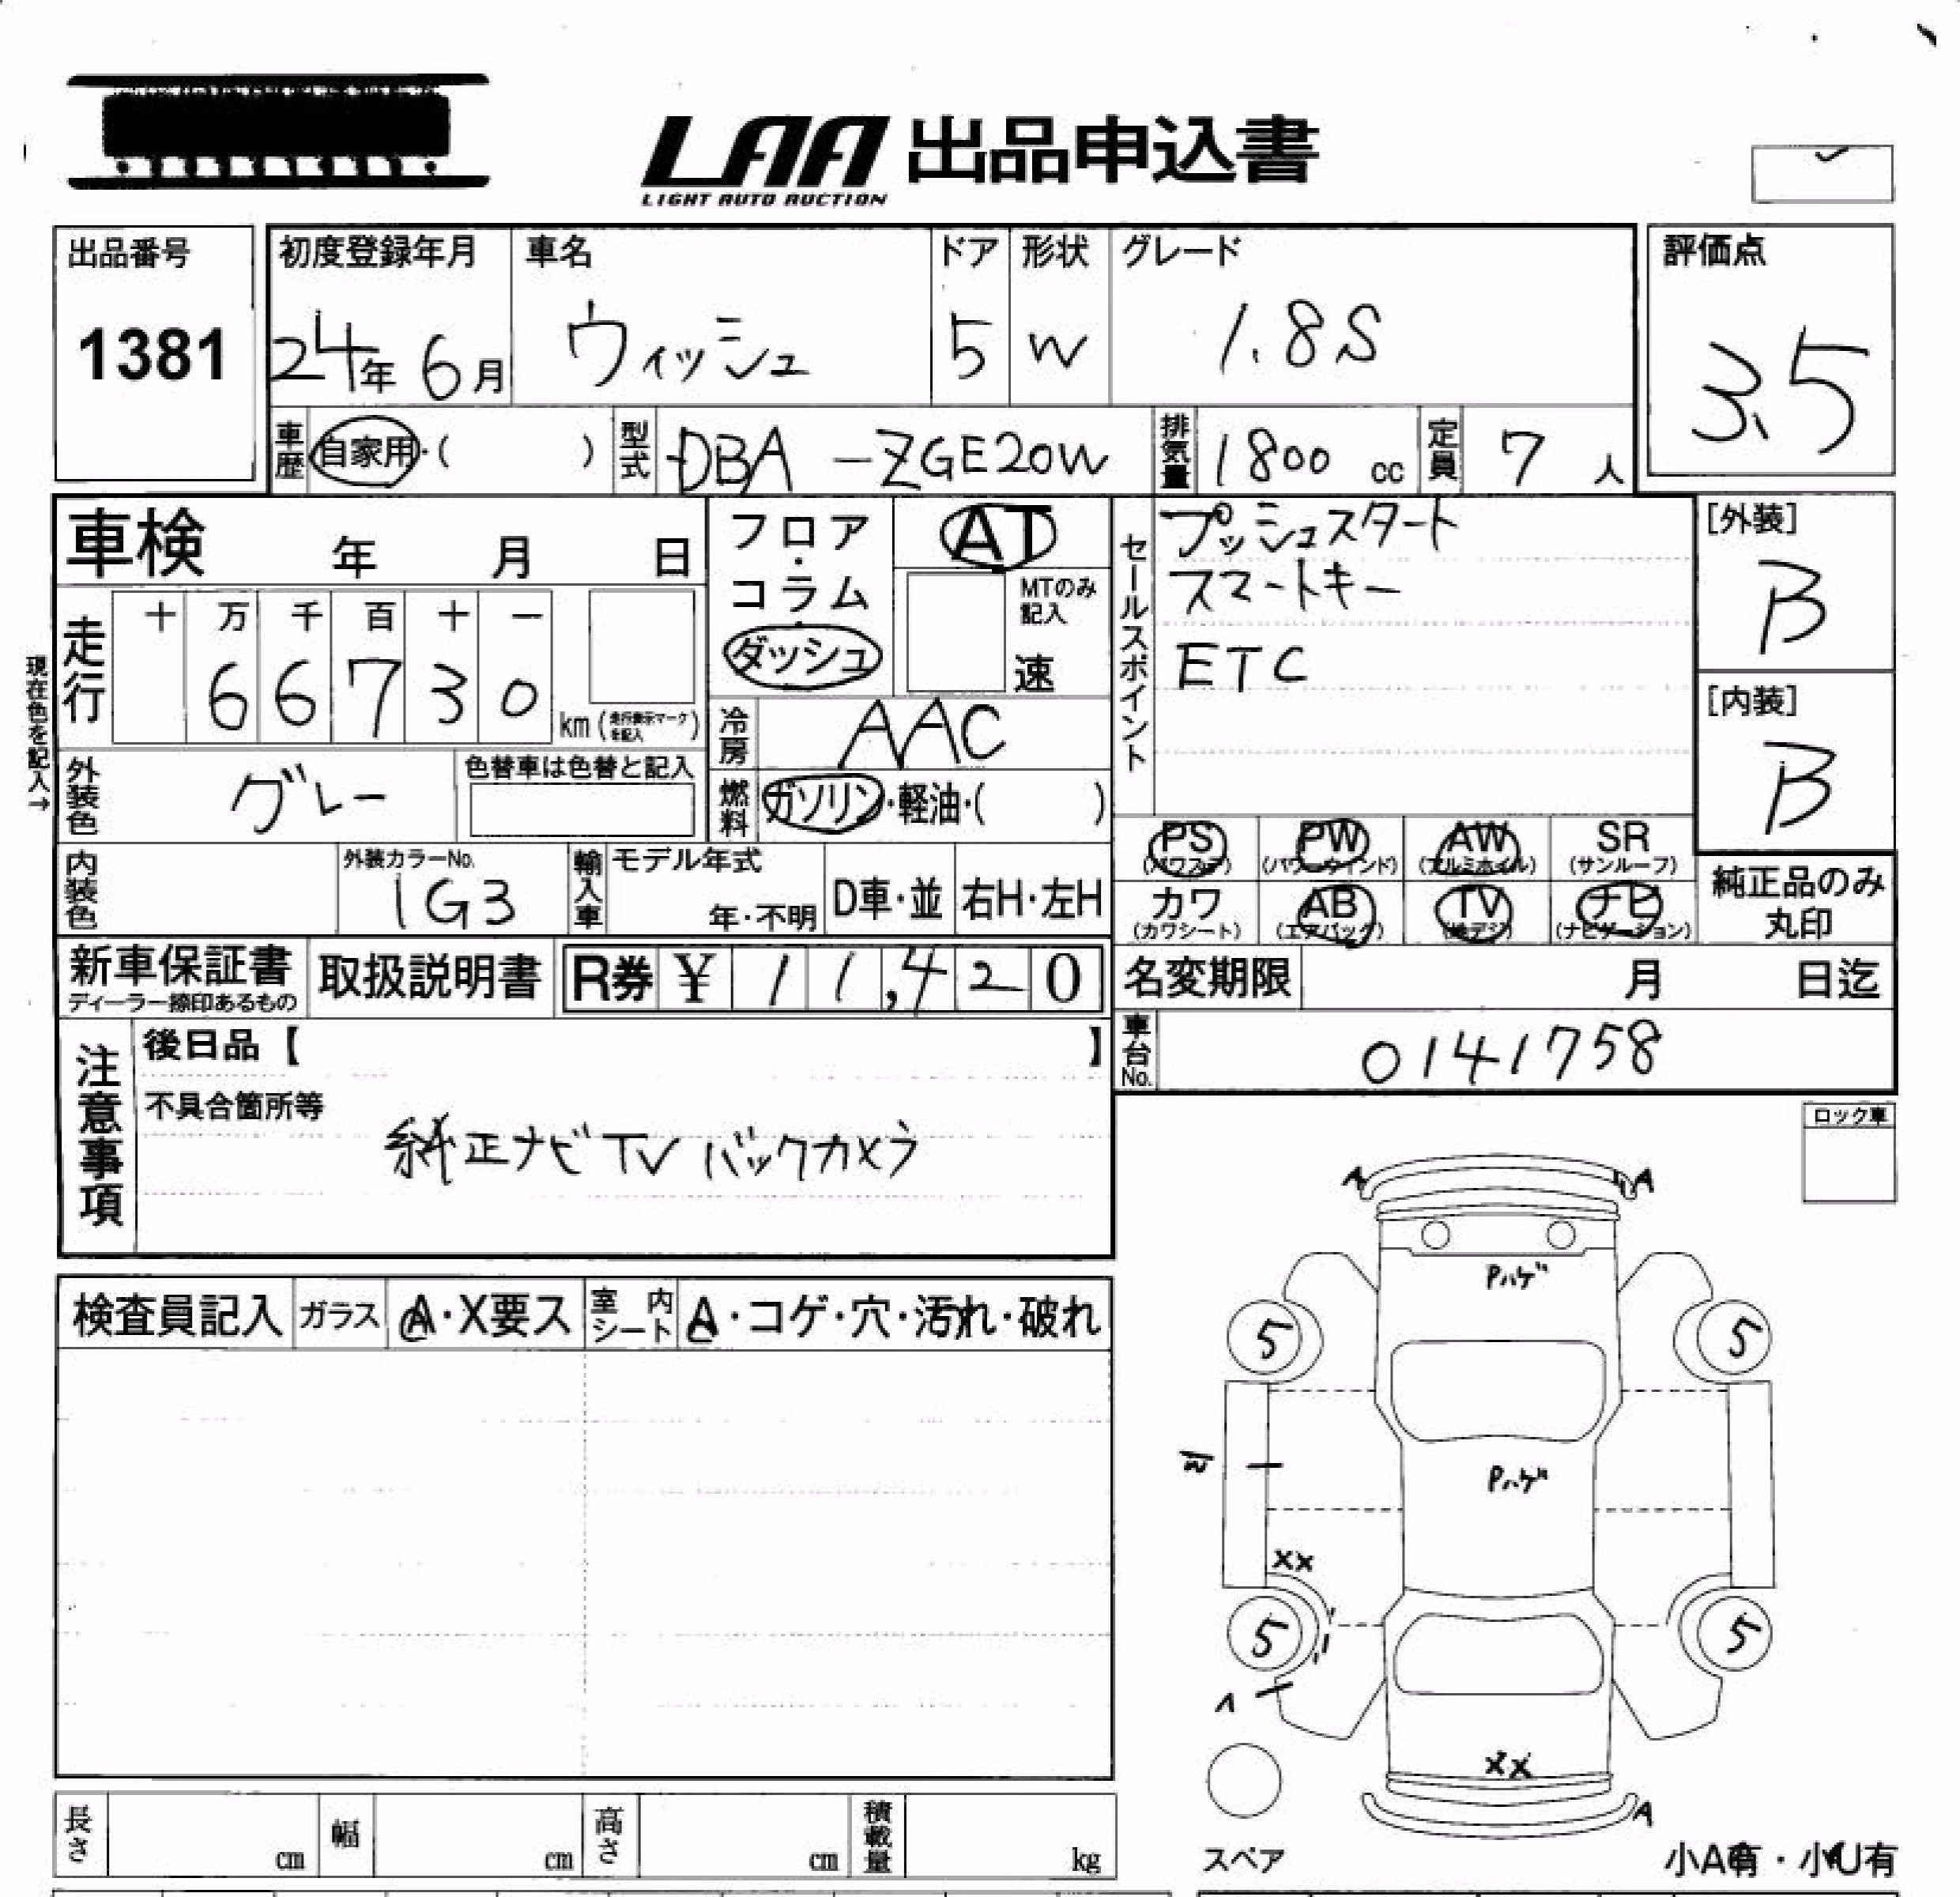 LAA 出品申込書
LIGHT AUTO AUCTION
出品番号
1381
初度登録年月
24年 6月
車名
ウィッシュ
ドア
5
形状
W
グレード
1.8S
評価点
3.5
車歴 自家用・( )
型式 DBA-ZGE20W
排気量 1800 cc
定員 7 人
車検 年 月 日
フロア・コラム・ダッシュ
AT
MTのみ記入
速
セールスポイント
プッシュスタート
スマートキー
ETC
[外装]
B
[内装]
B
現在色を記入→
走行
十 万 千 百 十 一
6 6 7 3 0
km (走行表示マークを記入)
冷房 AAC
燃料 ガソリン・軽油・( )
外装色 グレー
色替車は色替と記入
PS (パワステ)
PW (パワーウインド)
AW (アルミホイル)
SR (サンルーフ)
カワ (カワシート)
AB (エアバッグ)
TV (地デジ)
ナビ (ナビゲーション)
純正品のみ
丸印
内装色
外装カラーNo.
1G3
輸入車
モデル年式
年・不明
D車・並
右H・左H
新車保証書
ディーラー捺印あるもの
取扱説明書
R券 ¥ 11,420
名変期限 月 日迄
車台No. 0141758
注意事項
後日品【 】
不具合箇所等
純正ナビTVバックカメラ
ロック車
A A
Pハゲ
5 5
Pハゲ
XX
5 5
XX
A
検査員記入
ガラス A・X要ス
室内シート A・コゲ・穴・汚れ・破れ
長さ cm
幅 cm
高さ cm
積載量 kg
スペア
小A有・小U有